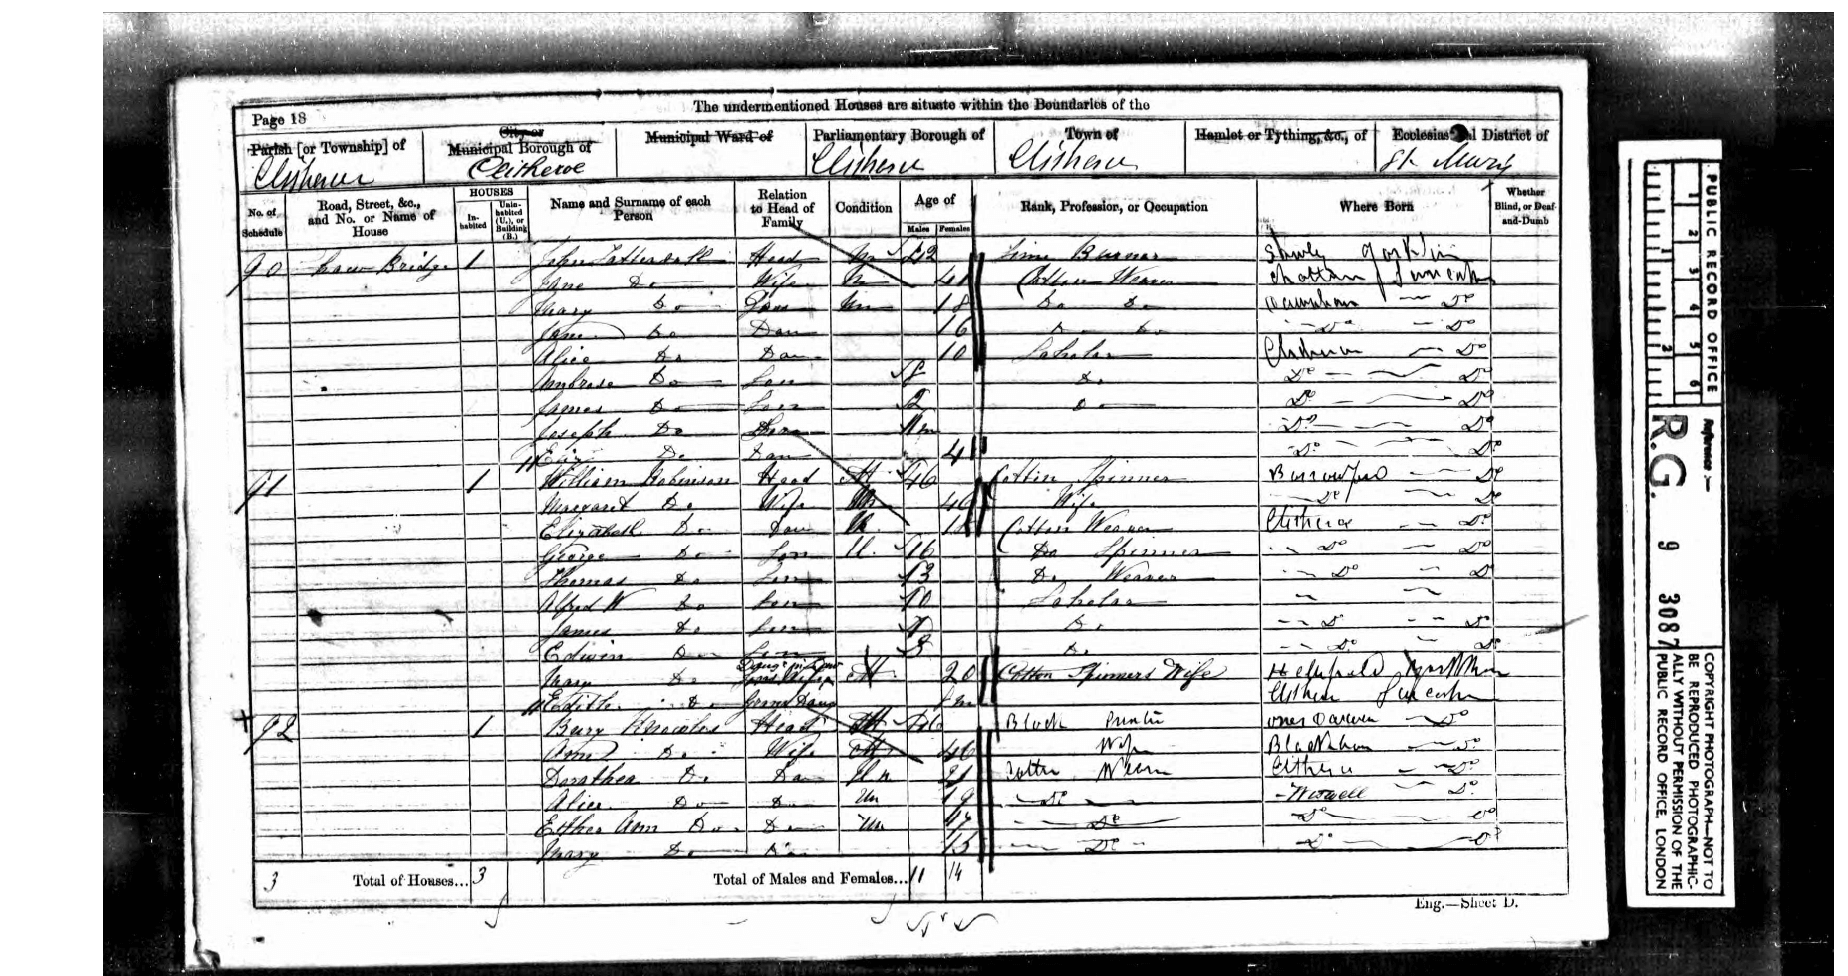 The undermentioned Houses are situate within the Boundaries of the
Page 18
Parish [or Township] of
City or
Municipal Borough of
Municipal Ward of
Parliamentary Borough of
Town of
Hamlet or Tything, &c., of
Ecclesiastical District of
Clitheroe Clitheroe Clitheroe Clitheroe St. Mary's
No. of Schedule
Road, Street, &c., and No. or Name of House
HOUSES
In-habited
Unin-habited (U.), or Building (B.)
Name and Surname of each Person
Relation to Head of Family
Condition
Age of
Males
Females
Rank, Profession, or Occupation
Where Born
Whether Blind, or Deaf-and-Dumb
90 Bridge 1 John Tattersall Head M 42 Lime Burner
Jane Do Wife M 41 Cotton Weaver Chatburn Lancash
Mary Do Dau Un 18 Do Do Do
Jane Do Dau 16 Do Do Do Do
Alice Do Dau 10 Scholar Clitheroe Do
Ambrose Do Son 8 Do Do Do
James Do Son 2 Do Do Do
Joseph Do Son 11m Do Do
Do Dau 4 Do Do
91 1 William Robinson Head M 46 Cotton Spinner Barrowford Do
Margaret Do Wife M 46 Wife Do Do
Elizabeth Do Dau U. 18 Cotton Weaver Clitheroe Do
George Do Son U. 16 Do Spinner Do Do
Thomas Do Son 13 Do Weaver Do D
Alfred W Do Son 10 Scholar
James Do Son Do D Do
Edwin Do Son 3 Do Do Do
Mary Do Daug in Law Sons Wife M 20 Cotton Spinners Wife Hellifield Yorkshire
Edith Do Grand Daug Clitheroe Lancash
92 1 Knowles Head M 46 Block Printer over Darwen Do
Ann Do Wife M 46 Wife Blackburn Do
Dorothea Do Dau Un 21 Cotton Weaver Clitheroe Do
Alice Do D Un 19 Do Wiswell Do
Esther Ann Do D Un 17 Do Do Do
Mary Do Dau 15 Do Do Do
3 Total of Houses... 3 Total of Males and Females... 11 14
Eng.—Sheet D.
PUBLIC RECORD OFFICE
1 2 3 4 5 6
1 2
Reference :—
R.G. 9 3087
COPYRIGHT PHOTOGRAPH—NOT TO
BE REPRODUCED PHOTOGRAPHIC-
ALLY WITHOUT PERMISSION OF THE
PUBLIC RECORD OFFICE, LONDON